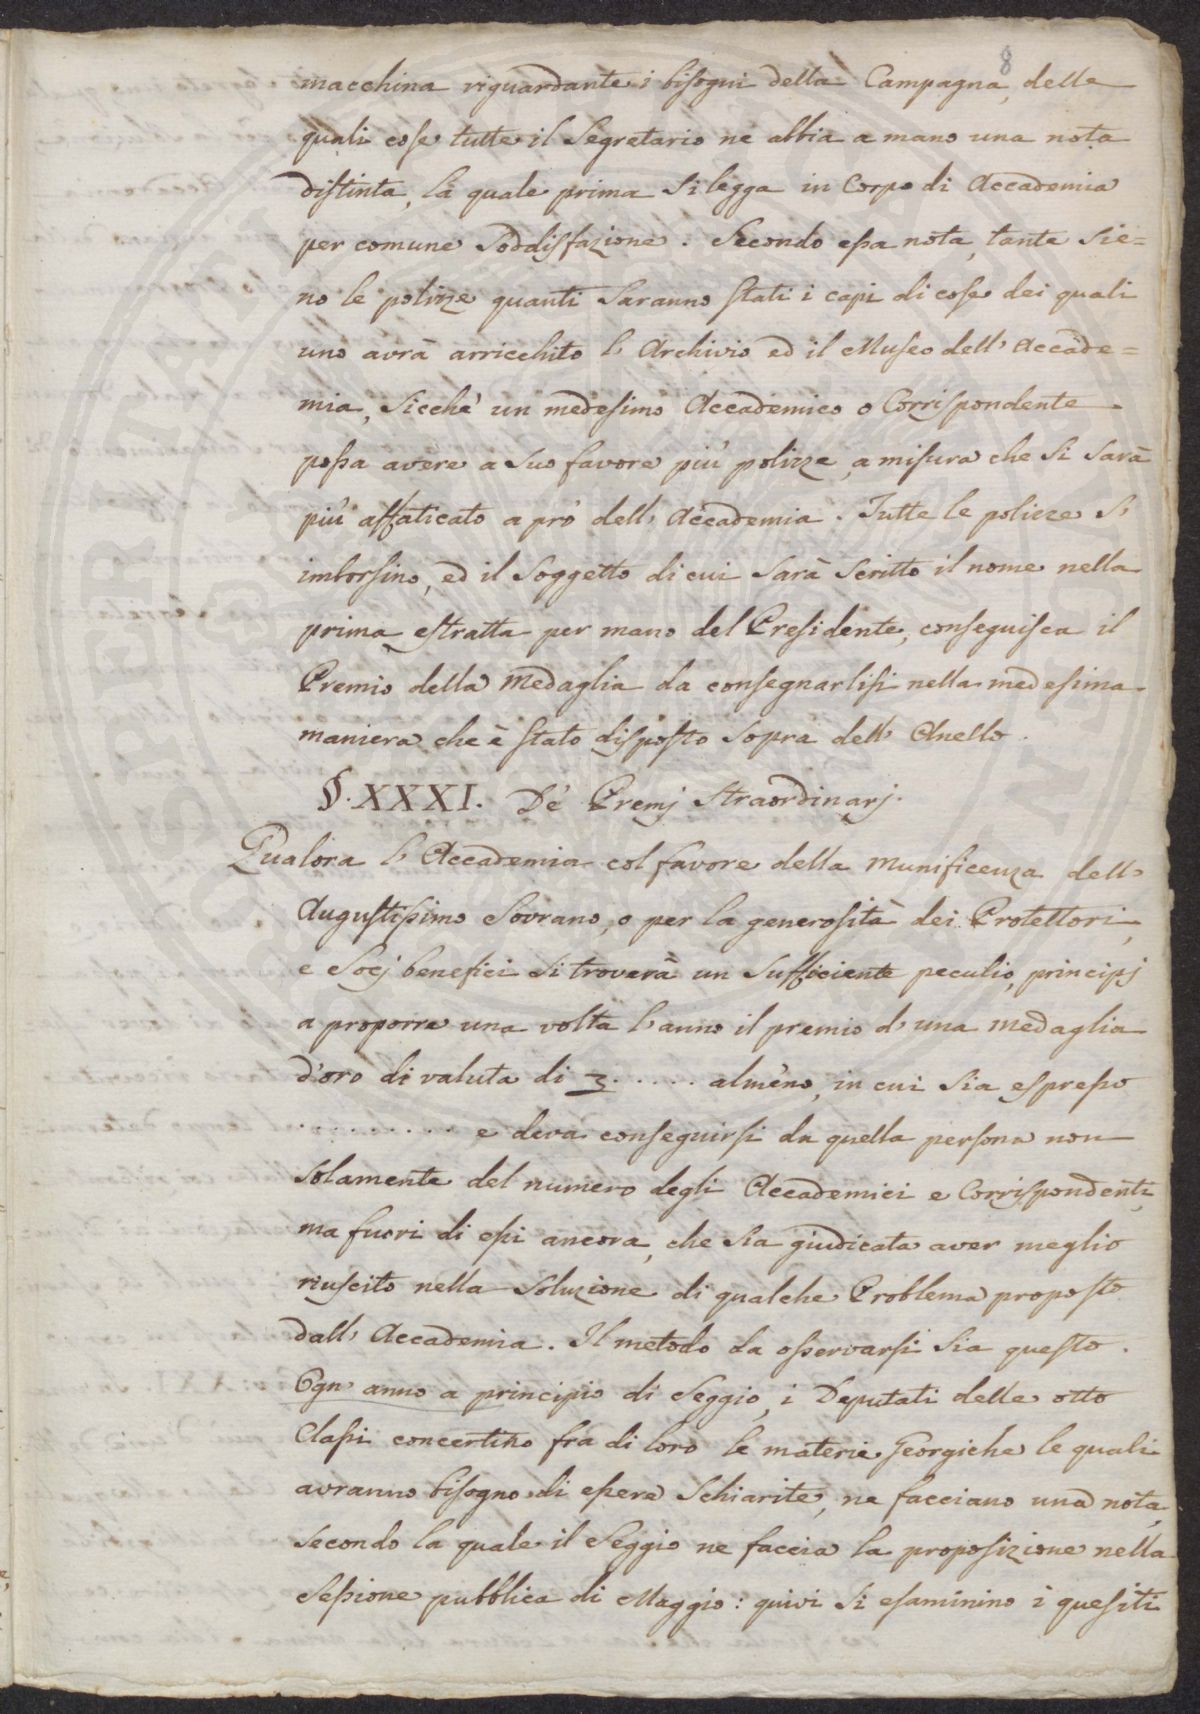 8
macchina riguardante i bisogni della Campagna, delle
quali cose tutte il Segretario ne abbia a mano una nota
distinta, la quale prima si legga in Corpo di Accademia
per comune Soddisfazione. Secondo essa nota, tante sie=
no le polizze quanti saranno stati i capi di cose dei quali
uno avrà arricchito l'Archivio ed il Museo dell'Accade=
mia, sicchè un medesimo Accademico o Corrispondente
possa avere a suo favore più polizze, a misura che si sarà
più affaticato a prò dell'Accademia. Tutte le polizze s'
imborsino, ed il Soggetto di cui sarà scritto il nome nella
prima estratta per mano del Presidente, conseguisca il
Premio della Medaglia da consegnarlisi nella medesima
maniera che è stato disposto sopra dell'Anello.
§. XXXI. De' Premj straordinarj.
Qualora l'Accademia col favore della munificenza dell'
Augustissimo Sovrano, o per la generosità dei Protettori,
e Socj benefici si troverà un sufficiente peculio, principj
a proporre una volta l'anno il premio d'una medaglia
d'oro di valuta di z. . . . . . almeno, in cui sia espresso
. . . . . . . . . . e deva conseguirsi da quella persona non
solamente del numero degli Accademici e Corrispondenti,
ma fuori di essi ancora, che sia giudicata aver meglio
riuscito nella soluzione di qualche Problema proposto
dall'Accademia. Il metodo da osservarsi sia questo.
Ogn'anno a principio di Seggio, i Deputati delle otto
Classi concertino fra di loro le materie Georgiche le quali
avranno bisogno di essere schiarite, ne facciano una nota,
secondo la quale il Seggio ne faccia la proposizione nella
Sessione pubblica di Maggio: quivi si esaminino i quesiti